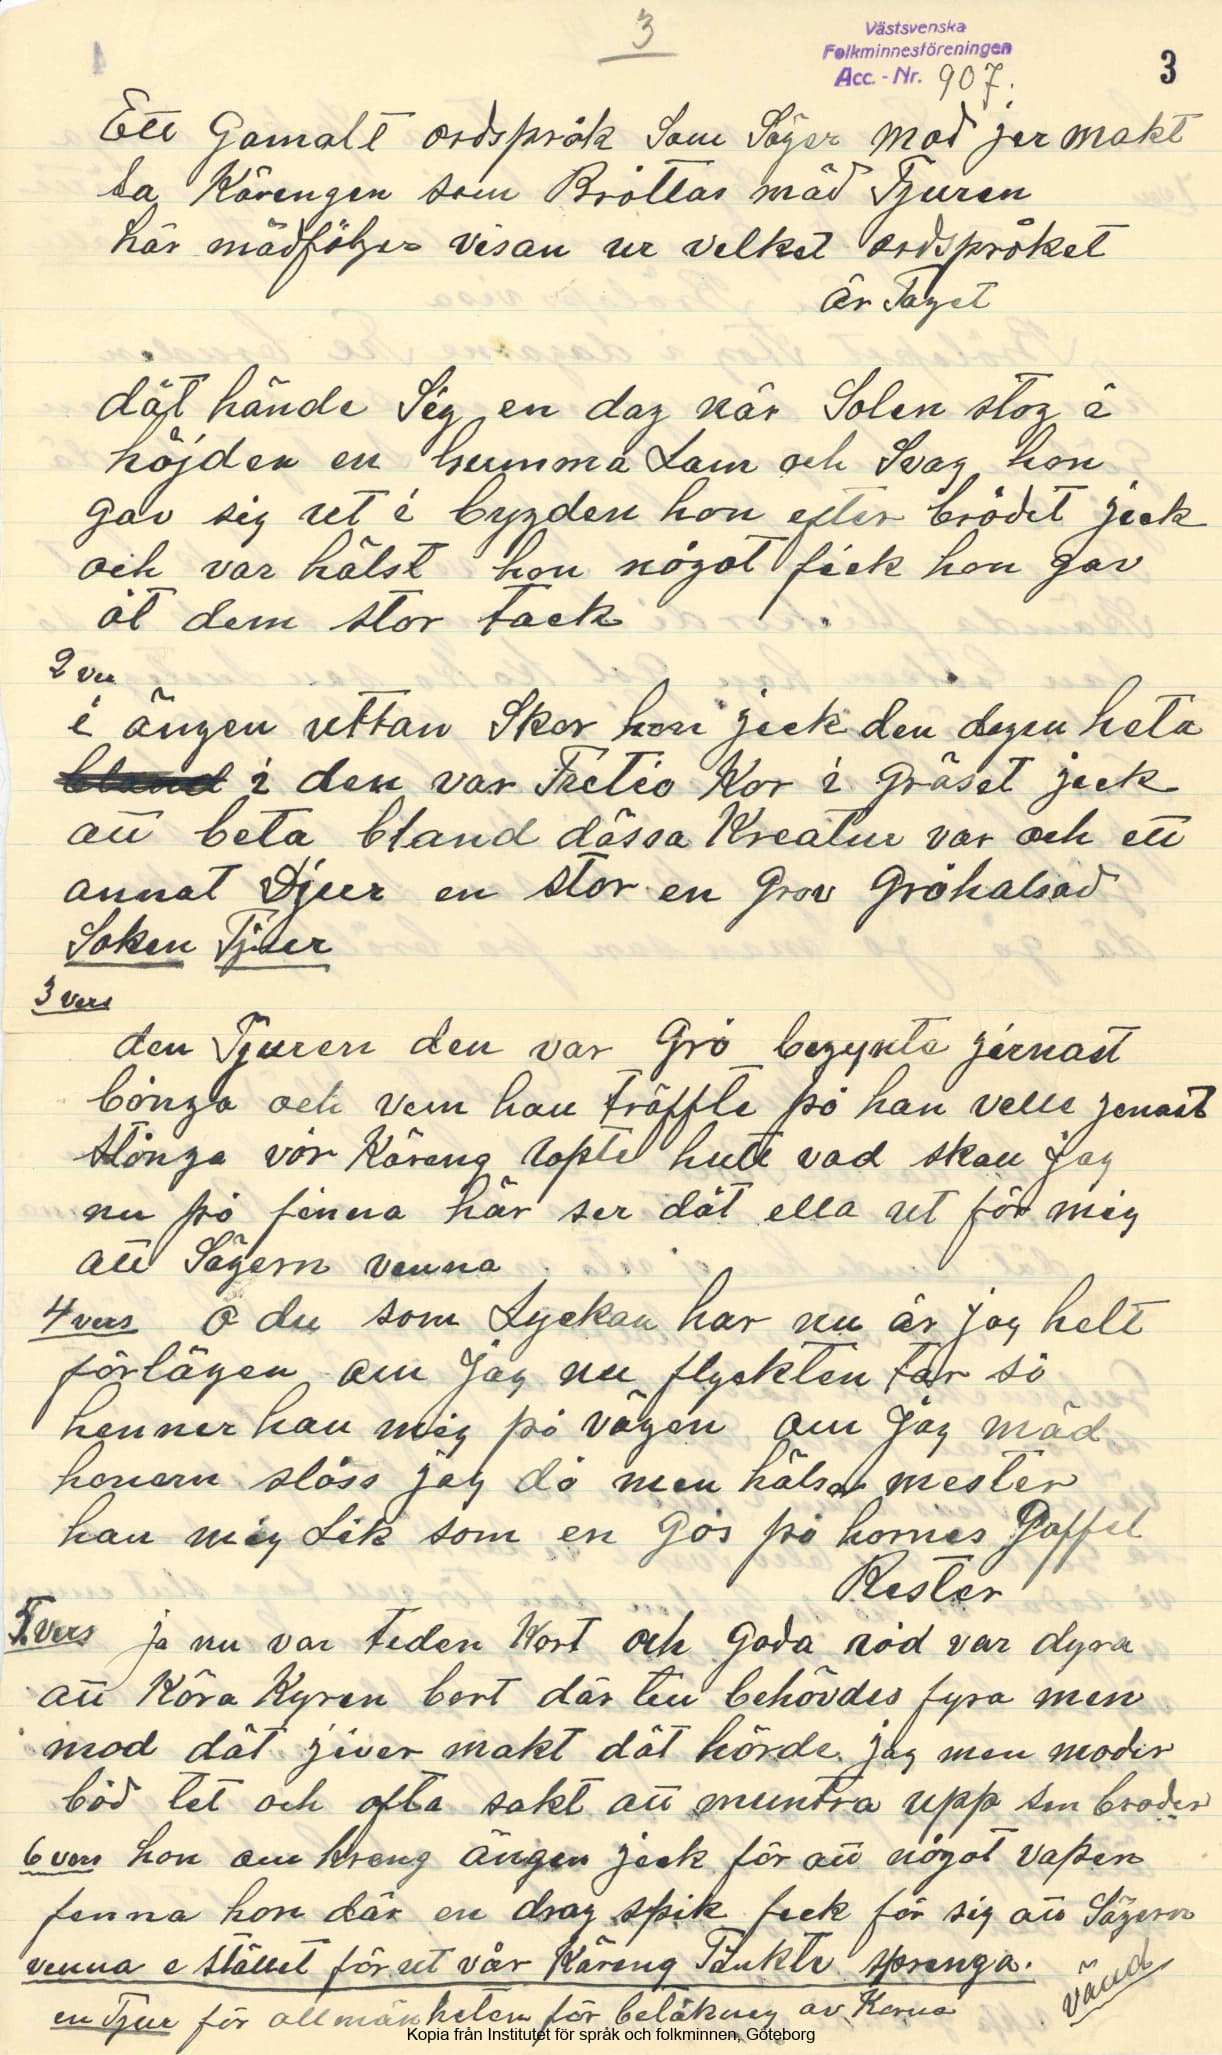 3
Västsvenska
Folkminnesföreningen
Acc. - Nr. 907.
3
Ett Gamalt ordspråk Som Säger mod jer makt
Sa Käringen som Bröttas mäd Tjuren
här mädföljer visan ur velket ordspråket
är Taget
dät hände Sig en dag när Solen stog i
höjden en gumma Lam och Svag hon
gav sig ut i bygden hon efter brödet jick
och var hälst hon något fick hon gav
åt dem stor tack
2 ver
i ängen uttan Skor hon jick den dagen heta
bland i den var Tretio Kor i Gräset jick
att beta bland dässa Kreatur var och ett
annat Djur en stor en Grov Gråhalsad
Soken Tjur
3 vers
den Tjuren den var Grå begynte jernast
bånga och vem han träffte på han velle jenast
stånga vår Käreng ropte hutt vad skau jag
nu på finna här ser dät ella ut för mig
att Sägern venna
4 vers O du som Lyckan har nu är jag helt
förlägen om jag nu flyckten tar så
henner hau mig på vägen om jag mäd
honom slåss jag då men hälsar mester
han mig Lik som en Gås på hornes Gaffel
Rester
5 vers ja nu var teden Kort och Goda råd var dyra
att Köra Kyren bort där till behövdes fyra men
mod dät jiver makt dät hörde jag men moder
böd tet och ofta sakt att muntra upp sin broder
6 vers hon om kreng ängen jick för att något vapen
fenna hon där en drag spik feck för sig att Sägern
venna e stället för ut vår Käreng Tänkte sprenga.
en Tjur för allmänheten för beläkneg av Korna
vänd
Kopia från Institutet för språk och folkminnen, Göteborg